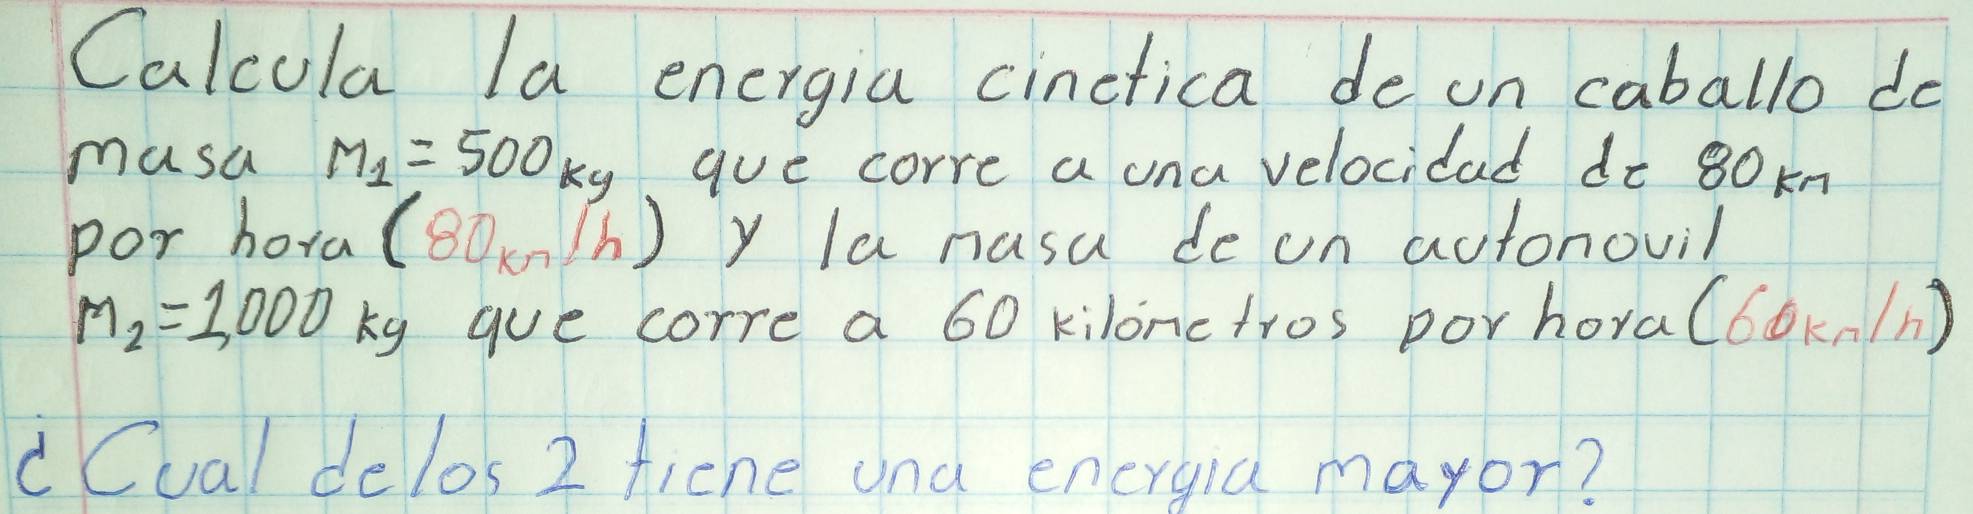 Calcula la energia cinetica de un caballo de
masa M₁=500kg que corre a una velocidad de 80 km
por hora (80km/h) y la masa de un automovil
M₂=1,000 kg que corre a 60 kilómetros por hora (60km/h)
¿Cual de los 2 tiene una energia mayor?